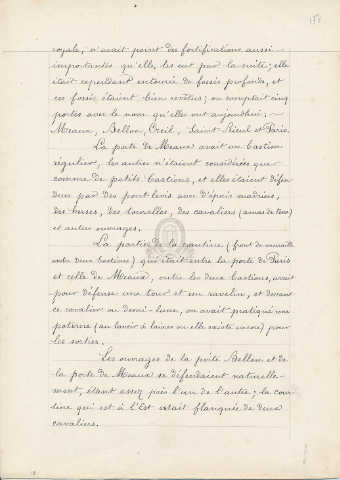 royale, n'avait point des fortifications aussi
importantes qu'elle les eut par la suite; elle
était cependant entourée de fossés profonds, et
ces fossés étaient bien revêtus; on comptait cinq
portes avec le nom qu'elles ont aujourd'hui: ~
Meaux, Bellon, Creil, Saint-Rieul et Paris.
La porte de Meaux avait un bastion
régulier, les autres n'étaient considérées que
comme de petits bastions, et elles étaient défen
dues par des pont levis avec d'épais madriers,
des herses, des tourelles, des cavaliers (amas de terre)
et autres ouvrages.
La partie de la courtine (front de muraille
entre deux bastions) qui était entre la porte de Paris
et celle de Meaux, outre les deux bastions, avait
pour défense une tour et un ravelin, et devant
ce cavalier ou demi-lune, on avait pratiqué une
poterne (au lavoir à laines où elle existe encore) pour
les sorties.
Les ouvrages de la porte Bellon et de
la porte de Meaux se défendaient naturelle-
ment, étant assez près l'un de l'autre; la cour
tine qui est à l'Est était flanquée de deux
cavaliers.